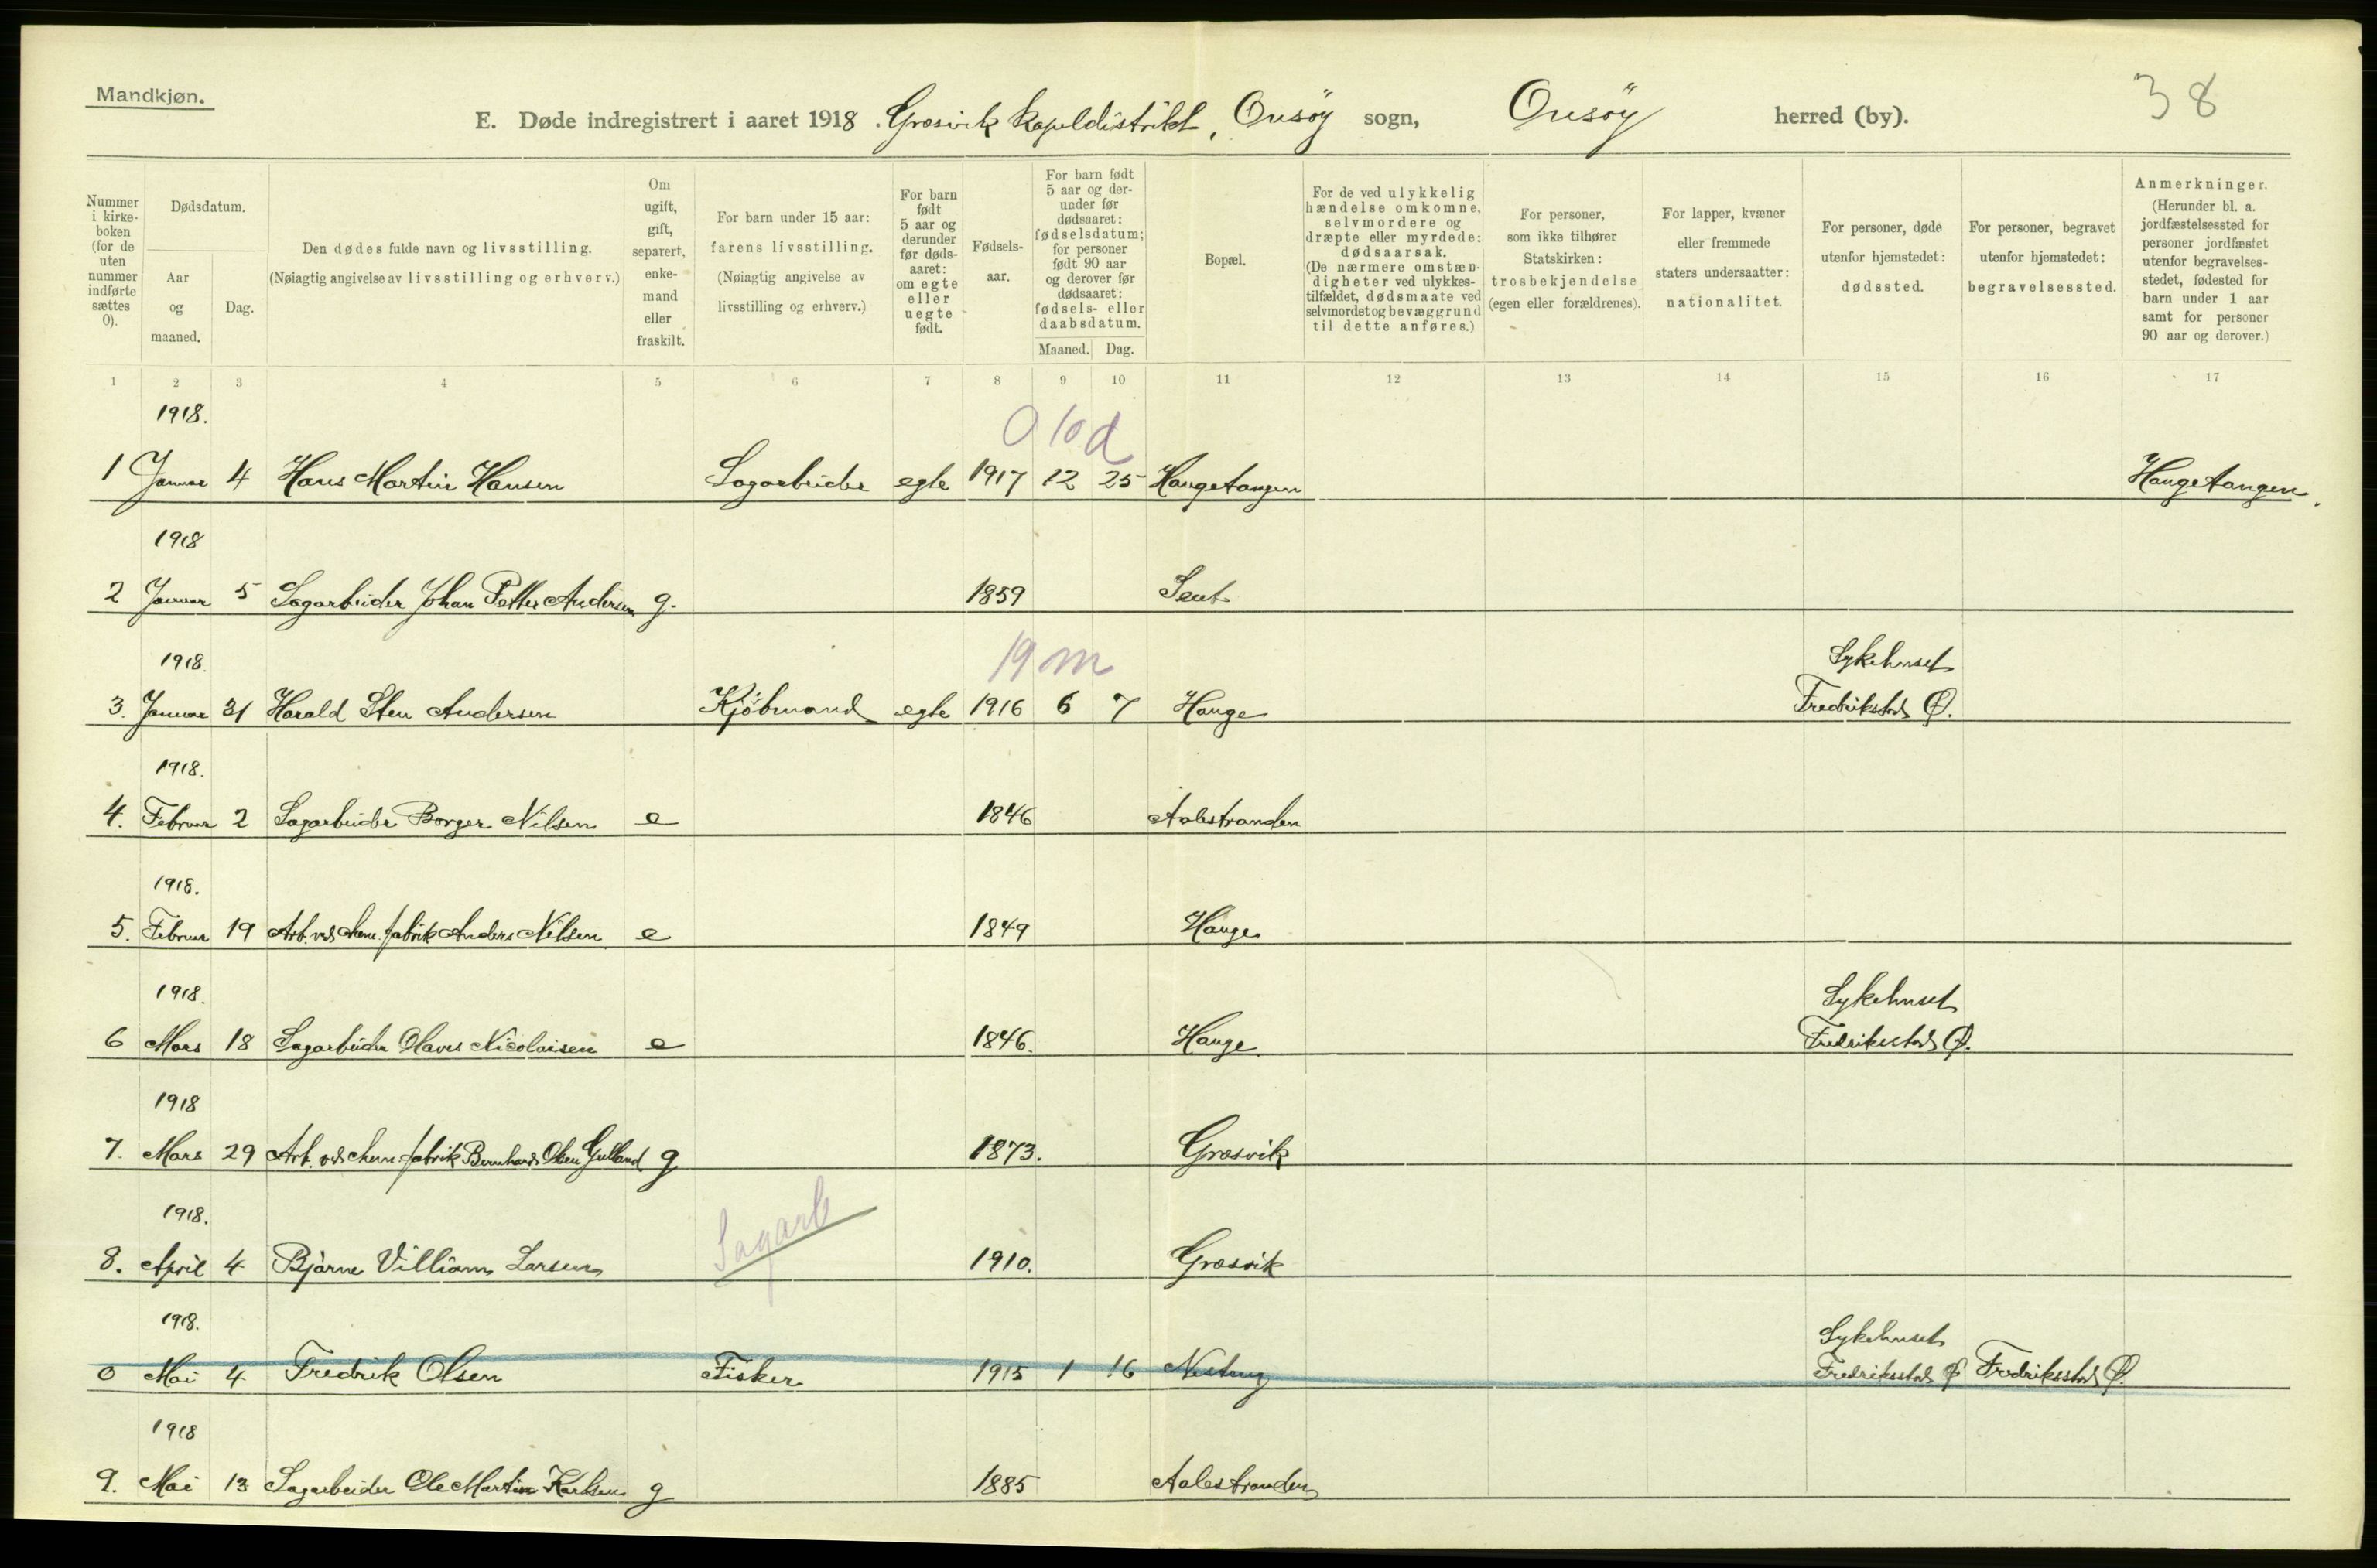 Mandkjøn.
38
E. Døde indregistrert i aaret 1918. Græsvik kapeldistrikt, Onsöy sogn, Onsöy herred (by).
Nummer i kirke-boken (for de uten nummer indførte sættes 0).
Dødsdatum.
Aar og maaned.
Dag.
Den dødes fulde navn og livsstilling.
(Nøiagtig angivelse av livsstilling og erhverv.)
Om ugift, gift, separert, enke-mand eller fraskilt.
For barn under 15 aar: farens livsstilling.
(Nøiagtig angivelse av livsstilling og erhverv.)
For barn født 5 aar og derunder før døds-aaret: om egte eller uegte født.
Fødsels-aar.
For barn født 5 aar og der-under før dødsaaret: fødselsdatum; for personer født 90 aar og derover før dødsaaret: fødsels- eller daabsdatum.
Maaned. Dag.
Bopæl.
For de ved ulykkelig hændelse omkomne, selvmordere og dræpte eller myrdede: dødsaarsak.
(De nærmere omstæn-digheter ved ulykkes-tilfældet, dødsmaate ved selvmordet og bevæggrund til dette anføres.)
For personer, som ikke tilhører Statskirken: trosbekjendelse (egen eller forældrenes).
For lapper, kvæner eller fremmede staters undersaatter: nationalitet.
For personer, døde utenfor hjemstedet: dødssted.
For personer, begravet utenfor hjemstedet: begravelsessted.
Anmerkninger.
(Herunder bl. a. jordfæstelsessted for personer jordfæstet utenfor begravelses-stedet, fødested for barn under 1 aar samt for personer 90 aar og derover.)
1 2 3 4 5 6 7 8 9 10 11 12 13 14 15 16 17
1918.
0 10 d
1 Januar 4 Hans Martin Hansen Sagarbeider egte 1917 12 25 Haugetangen Haugetangen.
1918
2 Januar 5 Sagarbeider Johan Petter Andersen g. 1859
1918.
19 m
Sykehuset
3. Januar 31 Harald Sten Andersen Kjöbmand egte 1916 6 7 Hauge Fredrikstad Ø.
1918.
4. Februar 2 Sagarbeider Borger Nilsen e 1846 Aalestranden
1918.
5. Februar 19 Arb. ved chem. fabrik Anders Nilsen e 1849 Hauge
1918.
Sykehuset
6 Mars 18 Sagarbeider Olaves Nicolaisen e 1846. Hauge. Fredrikstad Ø.
1918
7. Mars 29 Arb. ved chem fabrik Bernhard Olsen g 1873. Græsvik
1918.
Sagarb
8. April 4 Bjarne Villiam Larsen 1910. Græsvik
1918.
Sykehuset
0 Mai 4 Fredrik Olsen Fisker 1915 1 16 Fredriksstad Ø Fredriksstad Ø.
1918
9. Mai 13 Sagarbeider Ole Martin Karlsen g 1885 Aalestranden